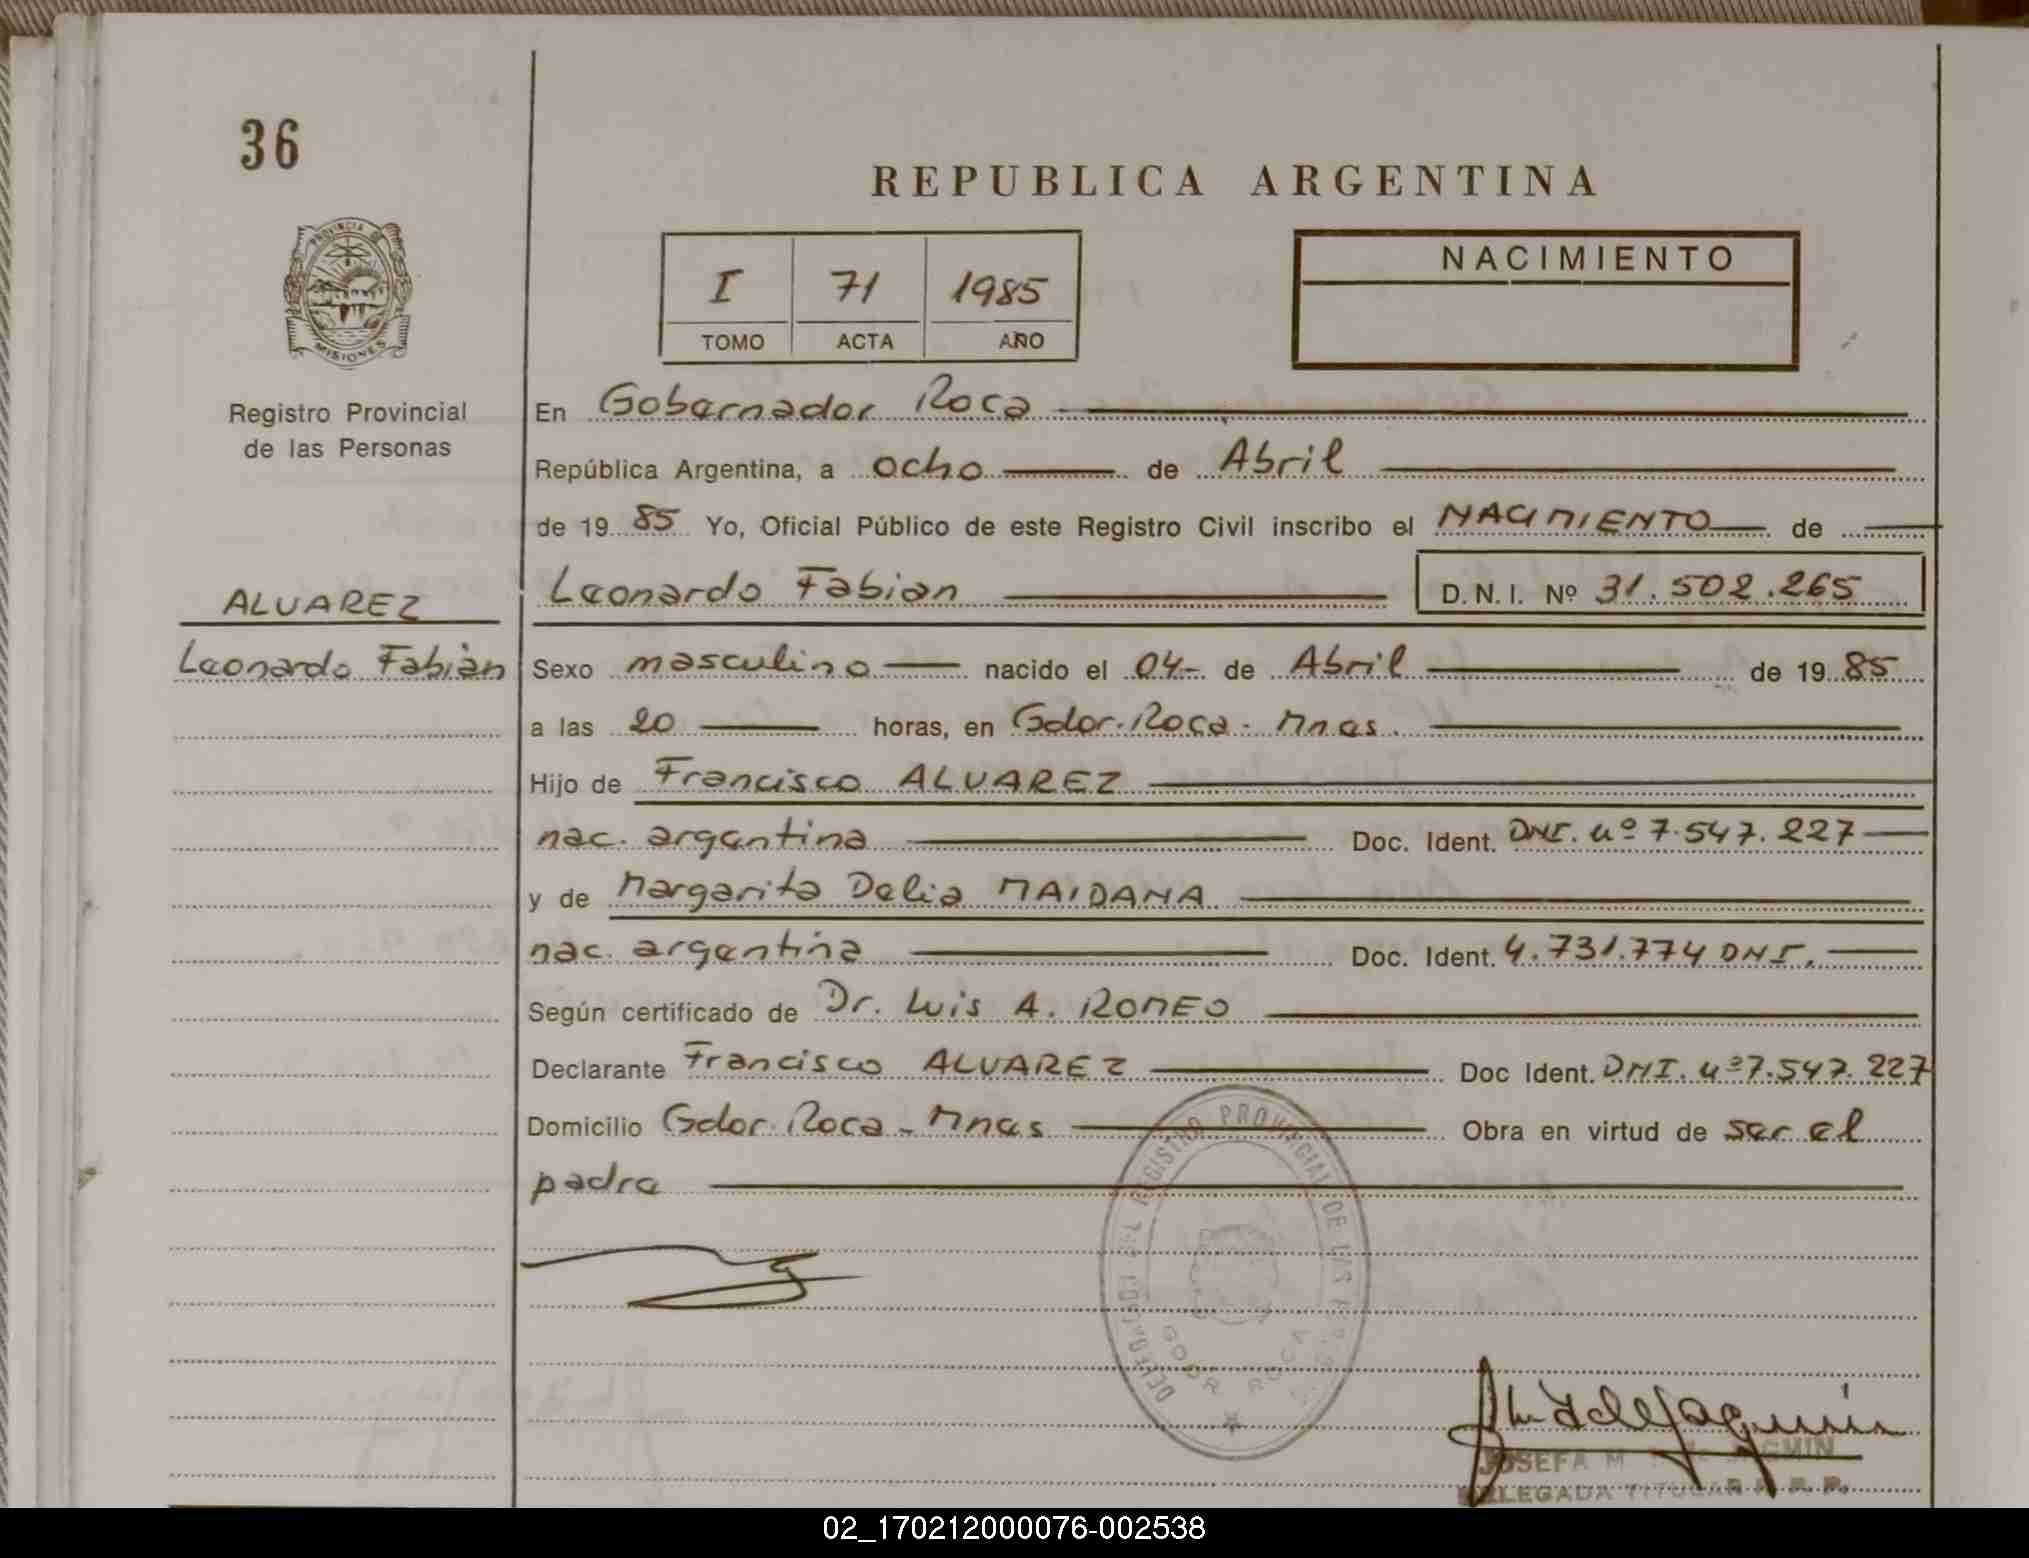 36
REPUBLICA ARGENTINA
PROVINCIA DE
MISIONES
I 71 1985
TOMO ACTA AÑO
NACIMIENTO
Registro Provincial
de las Personas
En Gobernador Roca
República Argentina, a ocho de Abril
de 19 85 Yo, Oficial Público de este Registro Civil inscribo el NACIMIENTO de
Leonardo Fabian D.N.I. Nº 31.502.265
ALVAREZ
Leonardo Fabián
Sexo masculino nacido el 04- de Abril de 19 85
a las 20 horas, en Gdor. Roca - Mnes.
Hijo de Francisco ALVAREZ
nac. argentina Doc. Ident. DNI. nº 7.547.227
y de Margarita Delia MAIDANA
nac. argentina Doc. Ident. 4.731.774 DNI.
Según certificado de Dr. Luis A. ROMEO
Declarante Francisco ALVAREZ Doc Ident. DNI. nº 7.547.227
Domicilio Gdor. Roca - Mnes Obra en virtud de ser el
padre
DEL REGISTRO PROVINCIAL DE LAS
GDOR ROCA
JOSEFA M
DELEGADA TITULAR R. P. P.
02_170212000076-002538